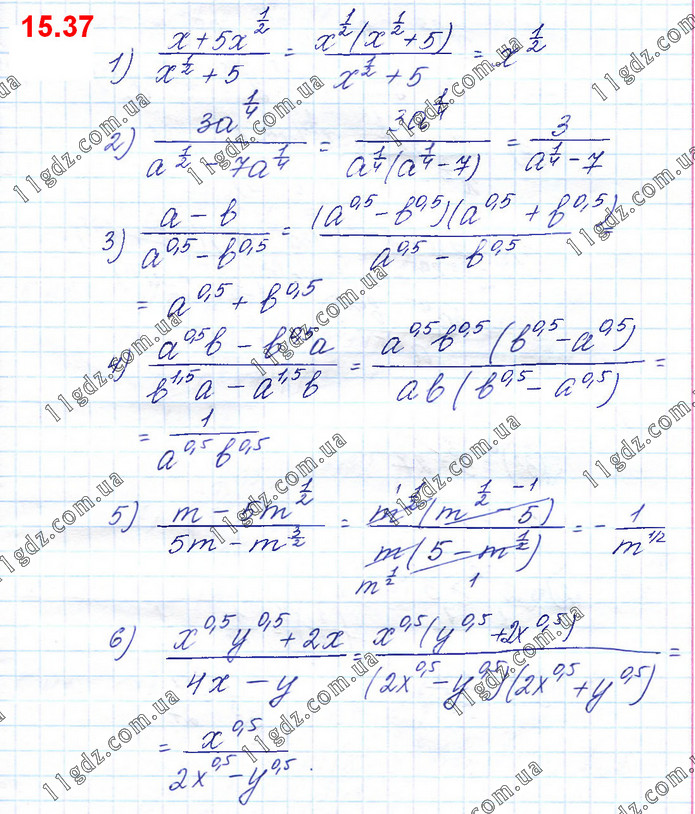 15.37
1) \frac{x+5x^{\frac{1}{2}}}{x^{\frac{1}{2}}+5} = \frac{x^{\frac{1}{2}}(x^{\frac{1}{2}}+5)}{x^{\frac{1}{2}}+5} = x^{\frac{1}{2}}
2) \frac{3a^{\frac{1}{4}}}{a^{\frac{1}{2}}-7a^{\frac{1}{4}}} = \frac{3a^{\frac{1}{4}}}{a^{\frac{1}{4}}(a^{\frac{1}{4}}-7)} = \frac{3}{a^{\frac{1}{4}}-7}
3) \frac{a-b}{a^{0,5}-b^{0,5}} = \frac{(a^{0,5}-b^{0,5})(a^{0,5}+b^{0,5})}{a^{0,5}-b^{0,5}} =
= a^{0,5}+b^{0,5}
4) \frac{a^{0,5}b-b^{0,5}a}{b^{1,5}a-a^{1,5}b} = \frac{a^{0,5}b^{0,5}(b^{0,5}-a^{0,5})}{ab(b^{0,5}-a^{0,5})} =
= \frac{1}{a^{0,5}b^{0,5}}
5) \frac{m-5m^{\frac{1}{2}}}{5m-m^{\frac{3}{2}}} = \frac{m^{\frac{1}{2}}(m^{\frac{1}{2}}-5)}{m(5-m^{\frac{1}{2}})} = -\frac{1}{m^{1/2}}
6) \frac{x^{0,5}y^{0,5}+2x}{4x-y} = \frac{x^{0,5}(y^{0,5}+2x^{0,5})}{(2x^{0,5}-y^{0,5})(2x^{0,5}+y^{0,5})} =
= \frac{x^{0,5}}{2x^{0,5}-y^{0,5}}.
11gdz.com.ua